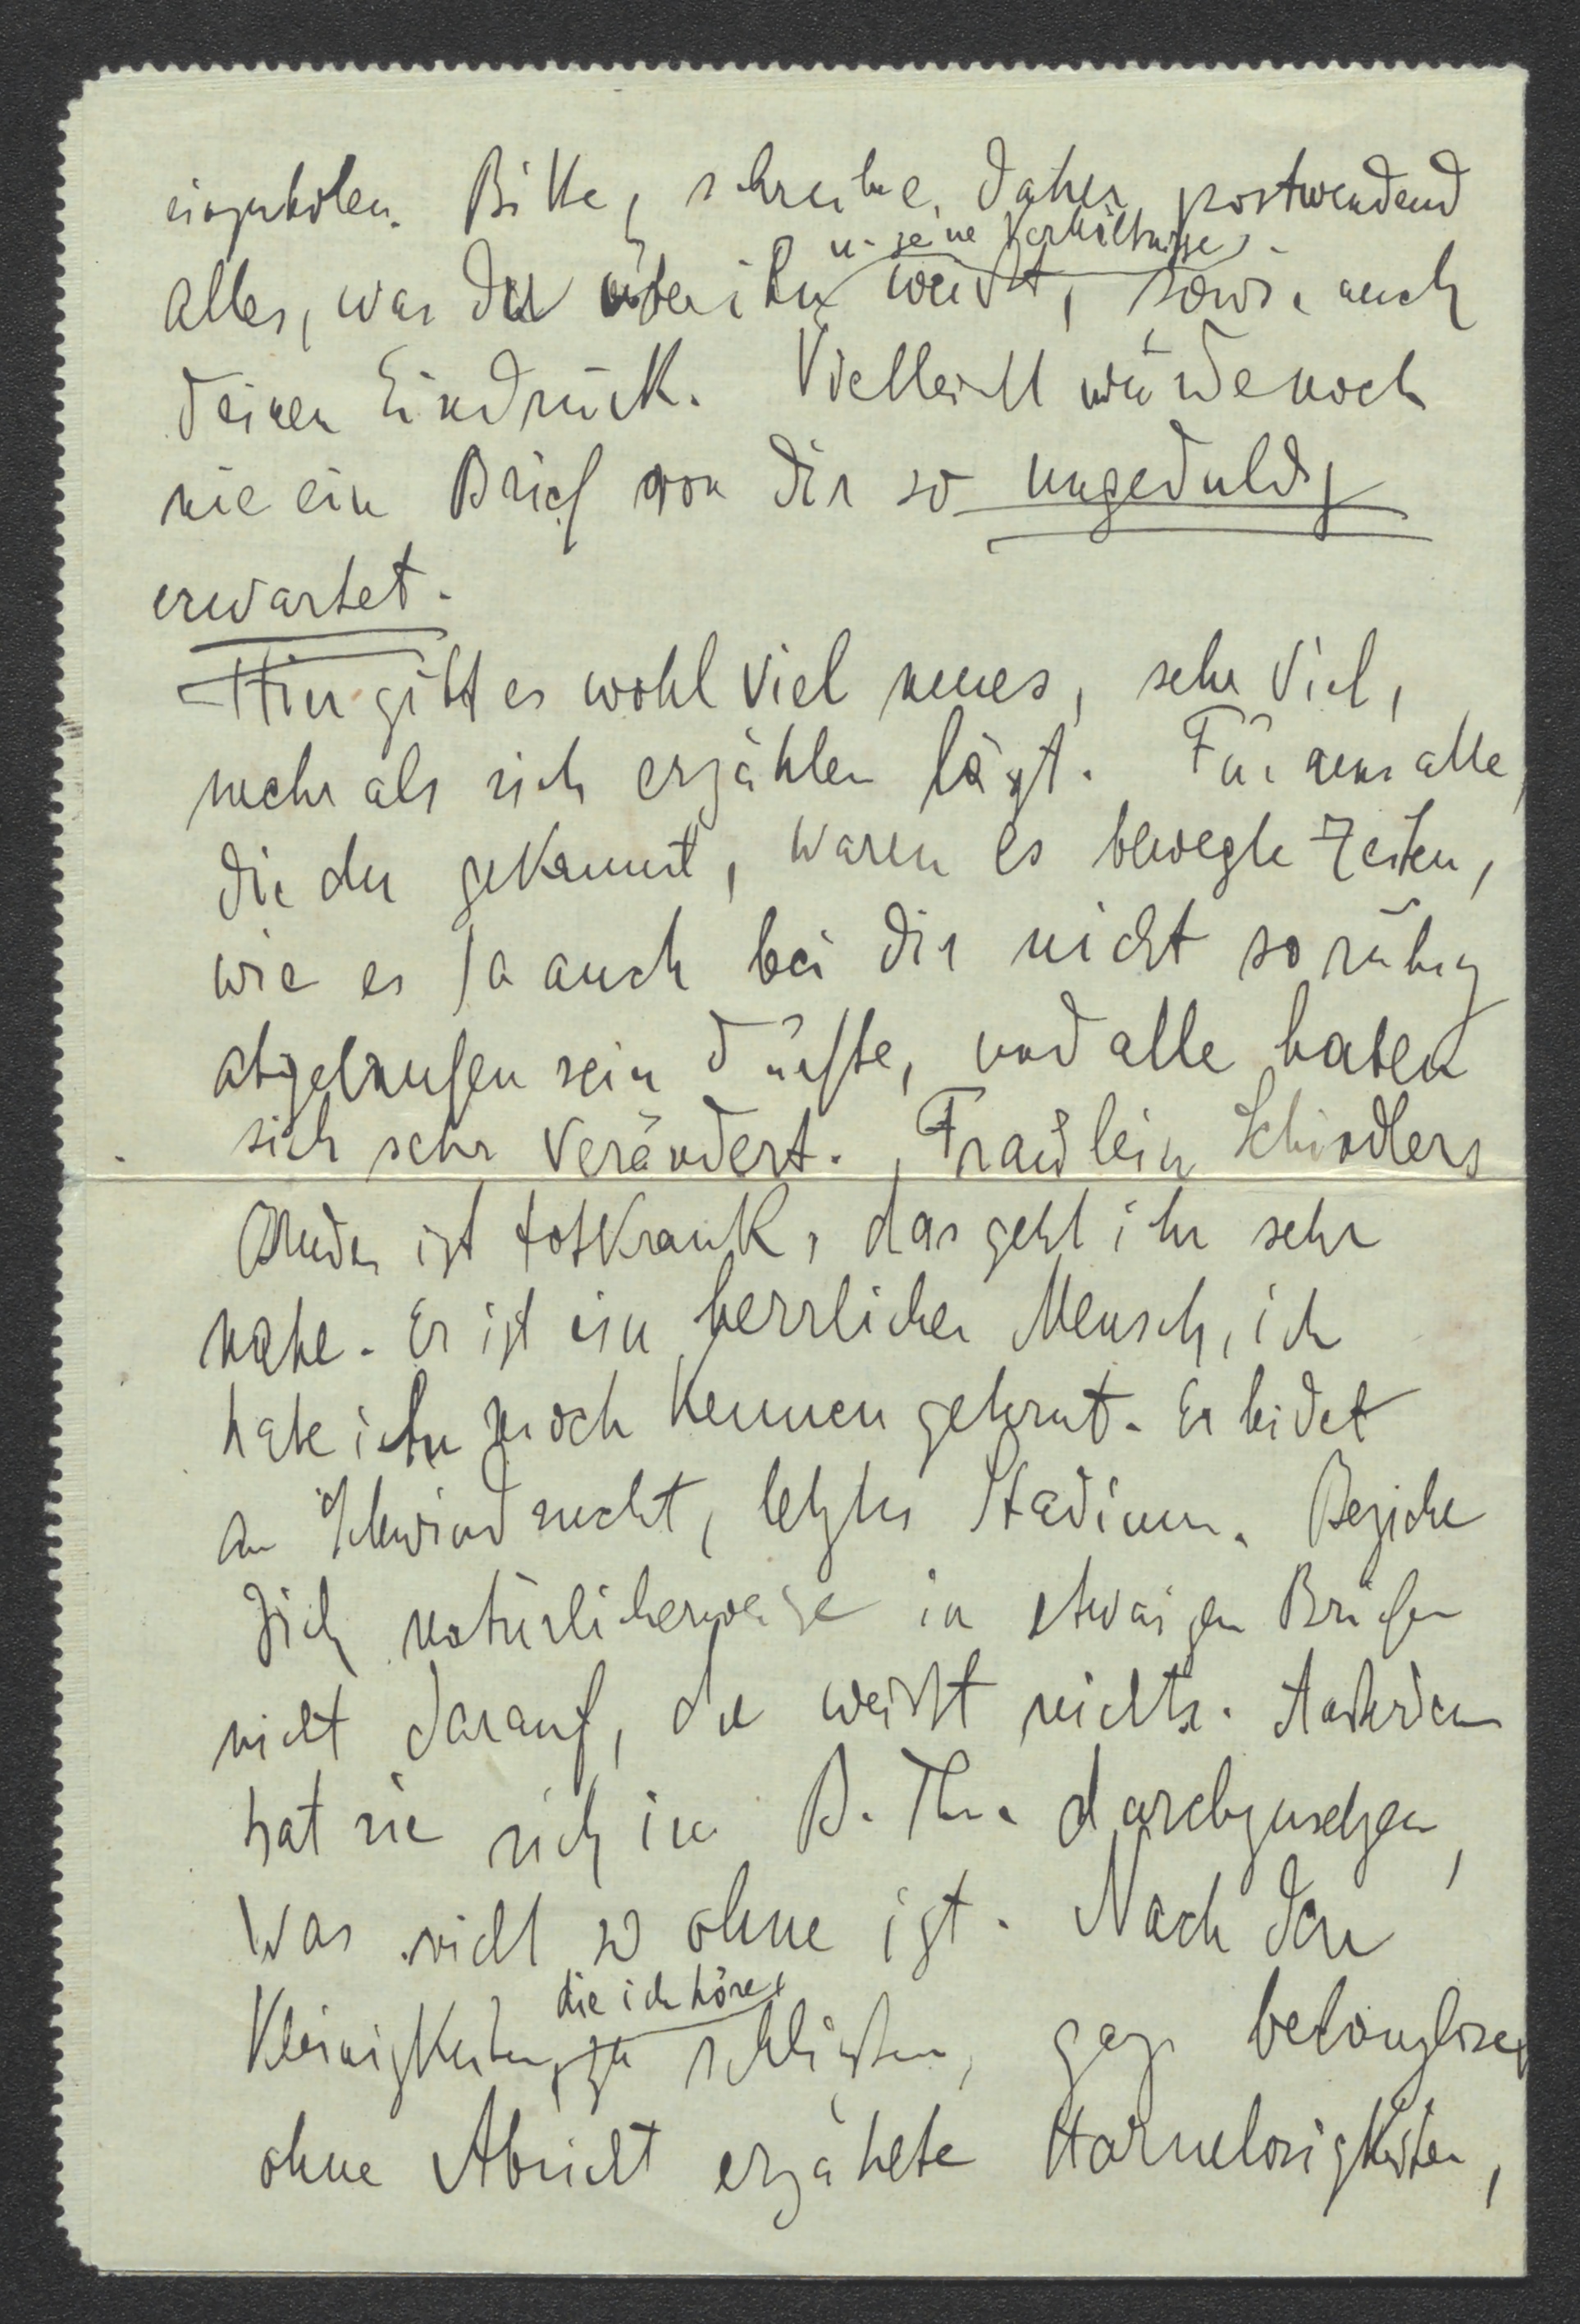 einzuholen. Bitte, schreibe daher postwendend
u. seine Verhältnisse
alles, was du über ihn weißt, sowie auch
deinen Eindruck. Vielleicht würde noch
nie ein Brief von dir so ungeduldig
erwartet.
Hier gibt es wohl viel neues, sehr viel,
mehr als sich erzählen läßt. Für uns alle,
die du gekannt, waren es bewegte Zeiten,
wie es ja auch bei dir nicht so ruhig
abgelaufen sein dürfte, und alle haben
sich sehr verändert. Fraulein Schindlers
Bruder ist totkrank, das geht ihr sehr
nahe. Er ist ein herrlicher Mensch, ich
habe ihn noch kennen gelernt. Er leidet
an Schwindsucht, letztes Stadium. Beziehe
dich natürlicherweise in etwaigen Briefen
nicht darauf, du weißt nichts. Außerdem
hat sie sich im B. Th. durchzusetzen,
was nicht so ohne ist. Nach den
die ich höre
Kleinigkeiten, zu schließen, ganz belanglose,
ohne Absicht erzählte Harmlosigkeiten,